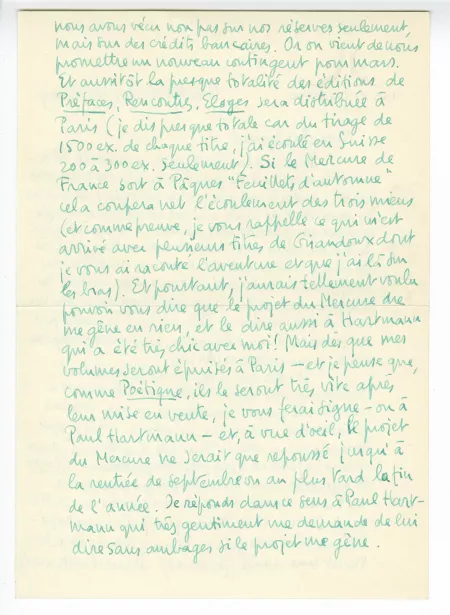 nous avons vécu non pas sur nos réserves seulement,
mais sur des crédits bancaires. Or on vient de nous
promettre un nouveau contingent pour mars.
Et aussitôt la presque totalité des éditions de
Préfaces, Rencontres, Eloges sera distribuée à
Paris (je dis presque totale car du tirage de
1500 ex. de chaque titre, j'ai écoulé en Suisse
200 à 300 ex. seulement). Si le Mercure de
France sort à Pâques "Feuillets d'automne"
cela coupera net l'écoulement des trois miens
(et comme preuve, je vous rappelle ce qui m'est
arrivé avec plusieurs titres de Giraudoux dont
je vous ai raconté l'aventure et que j'ai là sur
les bras). Et pourtant, j'aurais tellement voulu
pouvoir vous dire que le projet du Mercure ne
me gêne en rien, et le dire aussi à Hartmann
qui a été très chic avec moi! Mais dès que mes
volumes seront épuisés à Paris – et je pense que,
comme Poétique, ils le seront très vite après
leur mise en vente, je vous ferai signe – ou à
Paul Hartmann – et, à vue d'oeil, le projet
du Mercure ne serait que repoussé jusqu'à
la rentrée de septembre ou au plus tard la fin
de l'année. Je réponds dans ce sens à Paul Hart-
mann qui très gentiment me demande de lui
dire sans ambages si le projet me gêne.